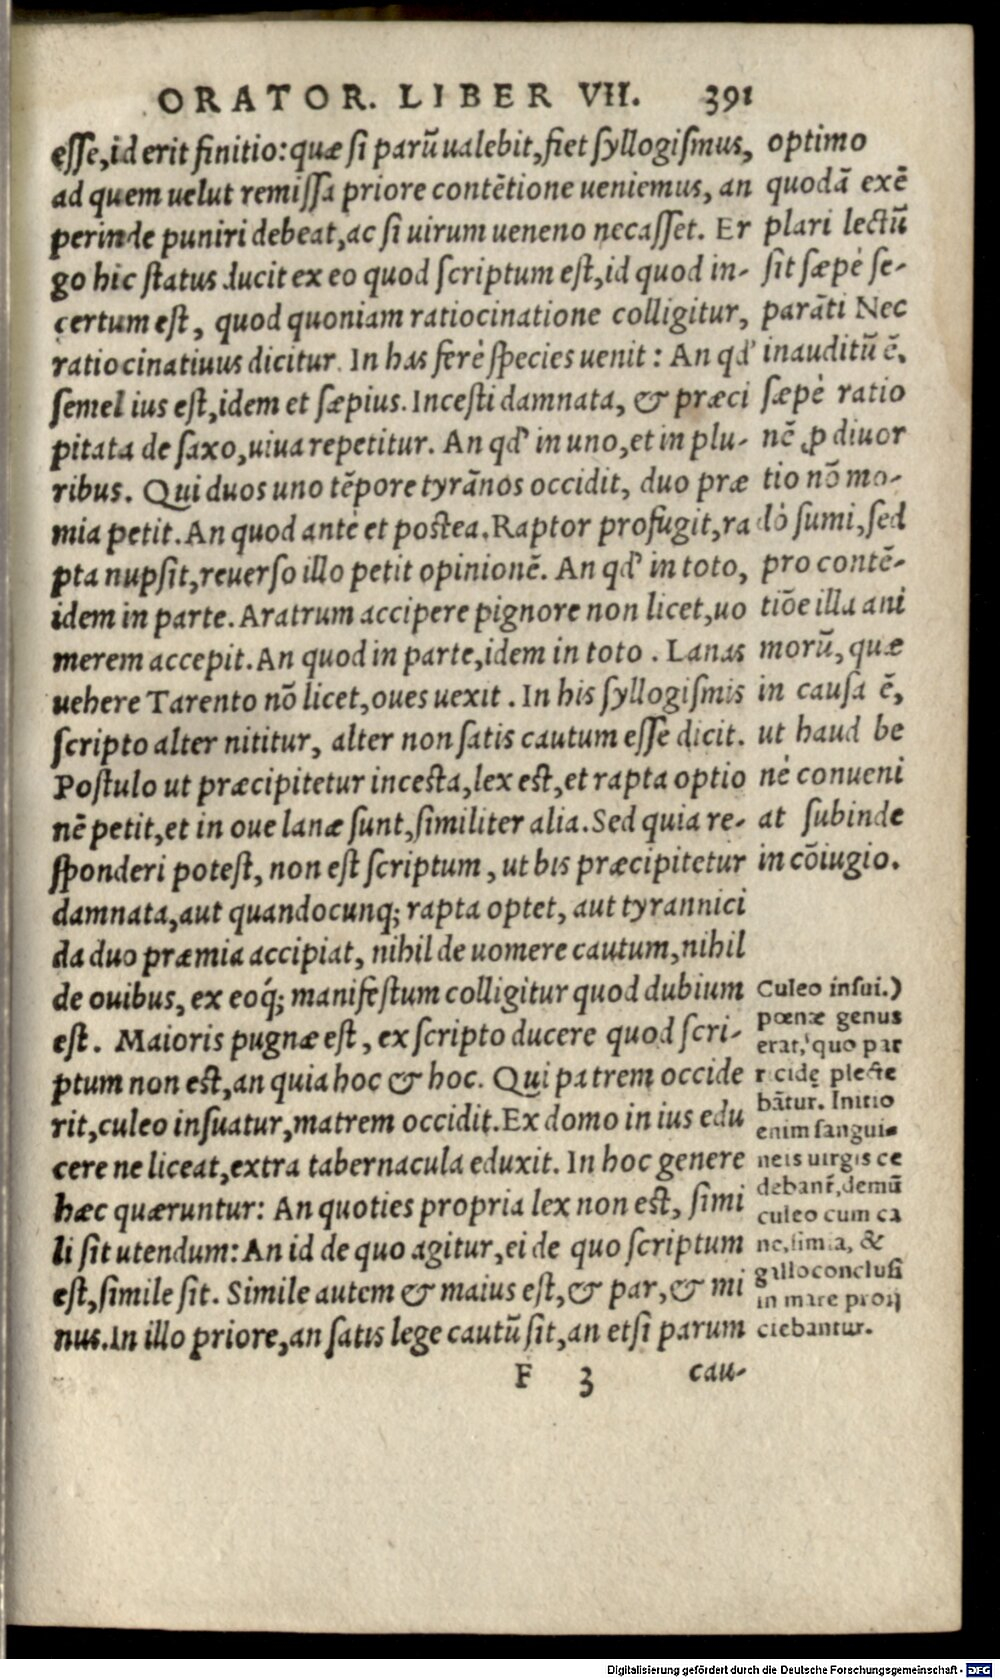 ORATOR. LIBER VII. 391
esse, id erit finitio: quæ si parū ualebit, fiet syllogismus,
ad quem uelut remissa priore contētione ueniemus, an
perinde puniri debeat, ac si uirum ueneno necasset. Er
go hic status ducit ex eo quod scriptum est, id quod in-
certum est, quod quoniam ratiocinatione colligitur,
ratiocinatiuus dicitur. In has ferè species uenit: An qđ
semel ius est, idem et sæpius. Incesti damnata, & præci
pitata de saxo, uiua repetitur. An qđ in uno, et in plu-
ribus. Qui duos uno tēpore tyrānos occidit, duo præ
mia petit. An quod ante et postea. Raptor profugit, ra
pta nupsit, reuerso illo petit opinionē. An qđ in toto,
idem in parte. Aratrum accipere pignore non licet, uo
merem accepit. An quod in parte, idem in toto. Lanas
uehere Tarento nō licet, oues uexit. In his syllogismis
scripto alter nititur, alter non satis cautum esse dicit.
Postulo ut præcipitetur incesta, lex est, et rapta optio
nē petit, et in oue lanæ sunt, similiter alia. Sed quia re-
sponderi potest, non est scriptum, ut bis præcipitetur
damnata, aut quandocunq; rapta optet, aut tyrannici
da duo præmia accipiat, nihil de uomere cautum, nihil
de ouibus, ex eoq́; manifestum colligitur quod dubium
est. Maioris pugnæ est, ex scripto ducere quod scri-
ptum non est, an quia hoc & hoc. Qui patrem occide
rit, culeo insuatur, matrem occidit. Ex domo in ius edu
cere ne liceat, extra tabernacula eduxit. In hoc genere
hæc quæruntur: An quoties propria lex non est, simi
li sit utendum: An id de quo agitur, ei de quo scriptum
est, simile sit. Simile autem & maius est, & par, & mi
nus. In illo priore, an satis lege cautū sit, an etsi parum
F 3 cau-
optimo
quodā exē
plari lectū
sit sæpè se-
parāti Nec
inauditū ē,
sæpè ratio
nē ꝓ diuor
tio nō mo-
dò sumi, sed
pro contē-
tiōe illa ani
morū, quæ
in causa ē,
ut haud be
nè conueni
at subinde
in cōiugio.
Culeo insui.)
pœnæ genus
erat, quo par
ricidę plecte
bātur. Initio
enim sangui-
neis uirgis ce
debant̄, demū
culeo cum ca
ne, simia, &
gallo conclusi
in mare proij
ciebantur.
Digitalisierung gefördert durch die Deutsche Forschungsgemeinschaft - DFG